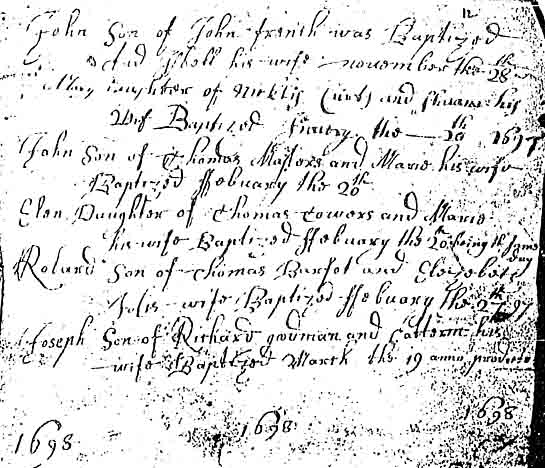 12
John Son of John french was Baptized
And his wife november the 28th
Mary daughter of and his
Wife Baptized the 1697
John Son of Thomas Masters and Marie his wife
Baptized ffebuary the 20th
Elen Daughter of Thomas Towers and Marie
his wife Baptized ffebuary the 20th being the same day
Roland Son of Thomas Barfot and Elezebeth
his wife Baptized ffebuary the 27th 97
Joseph Son of Richard godman and Cattern his
wife Baptized March the 19 anno
1698 1698 1698